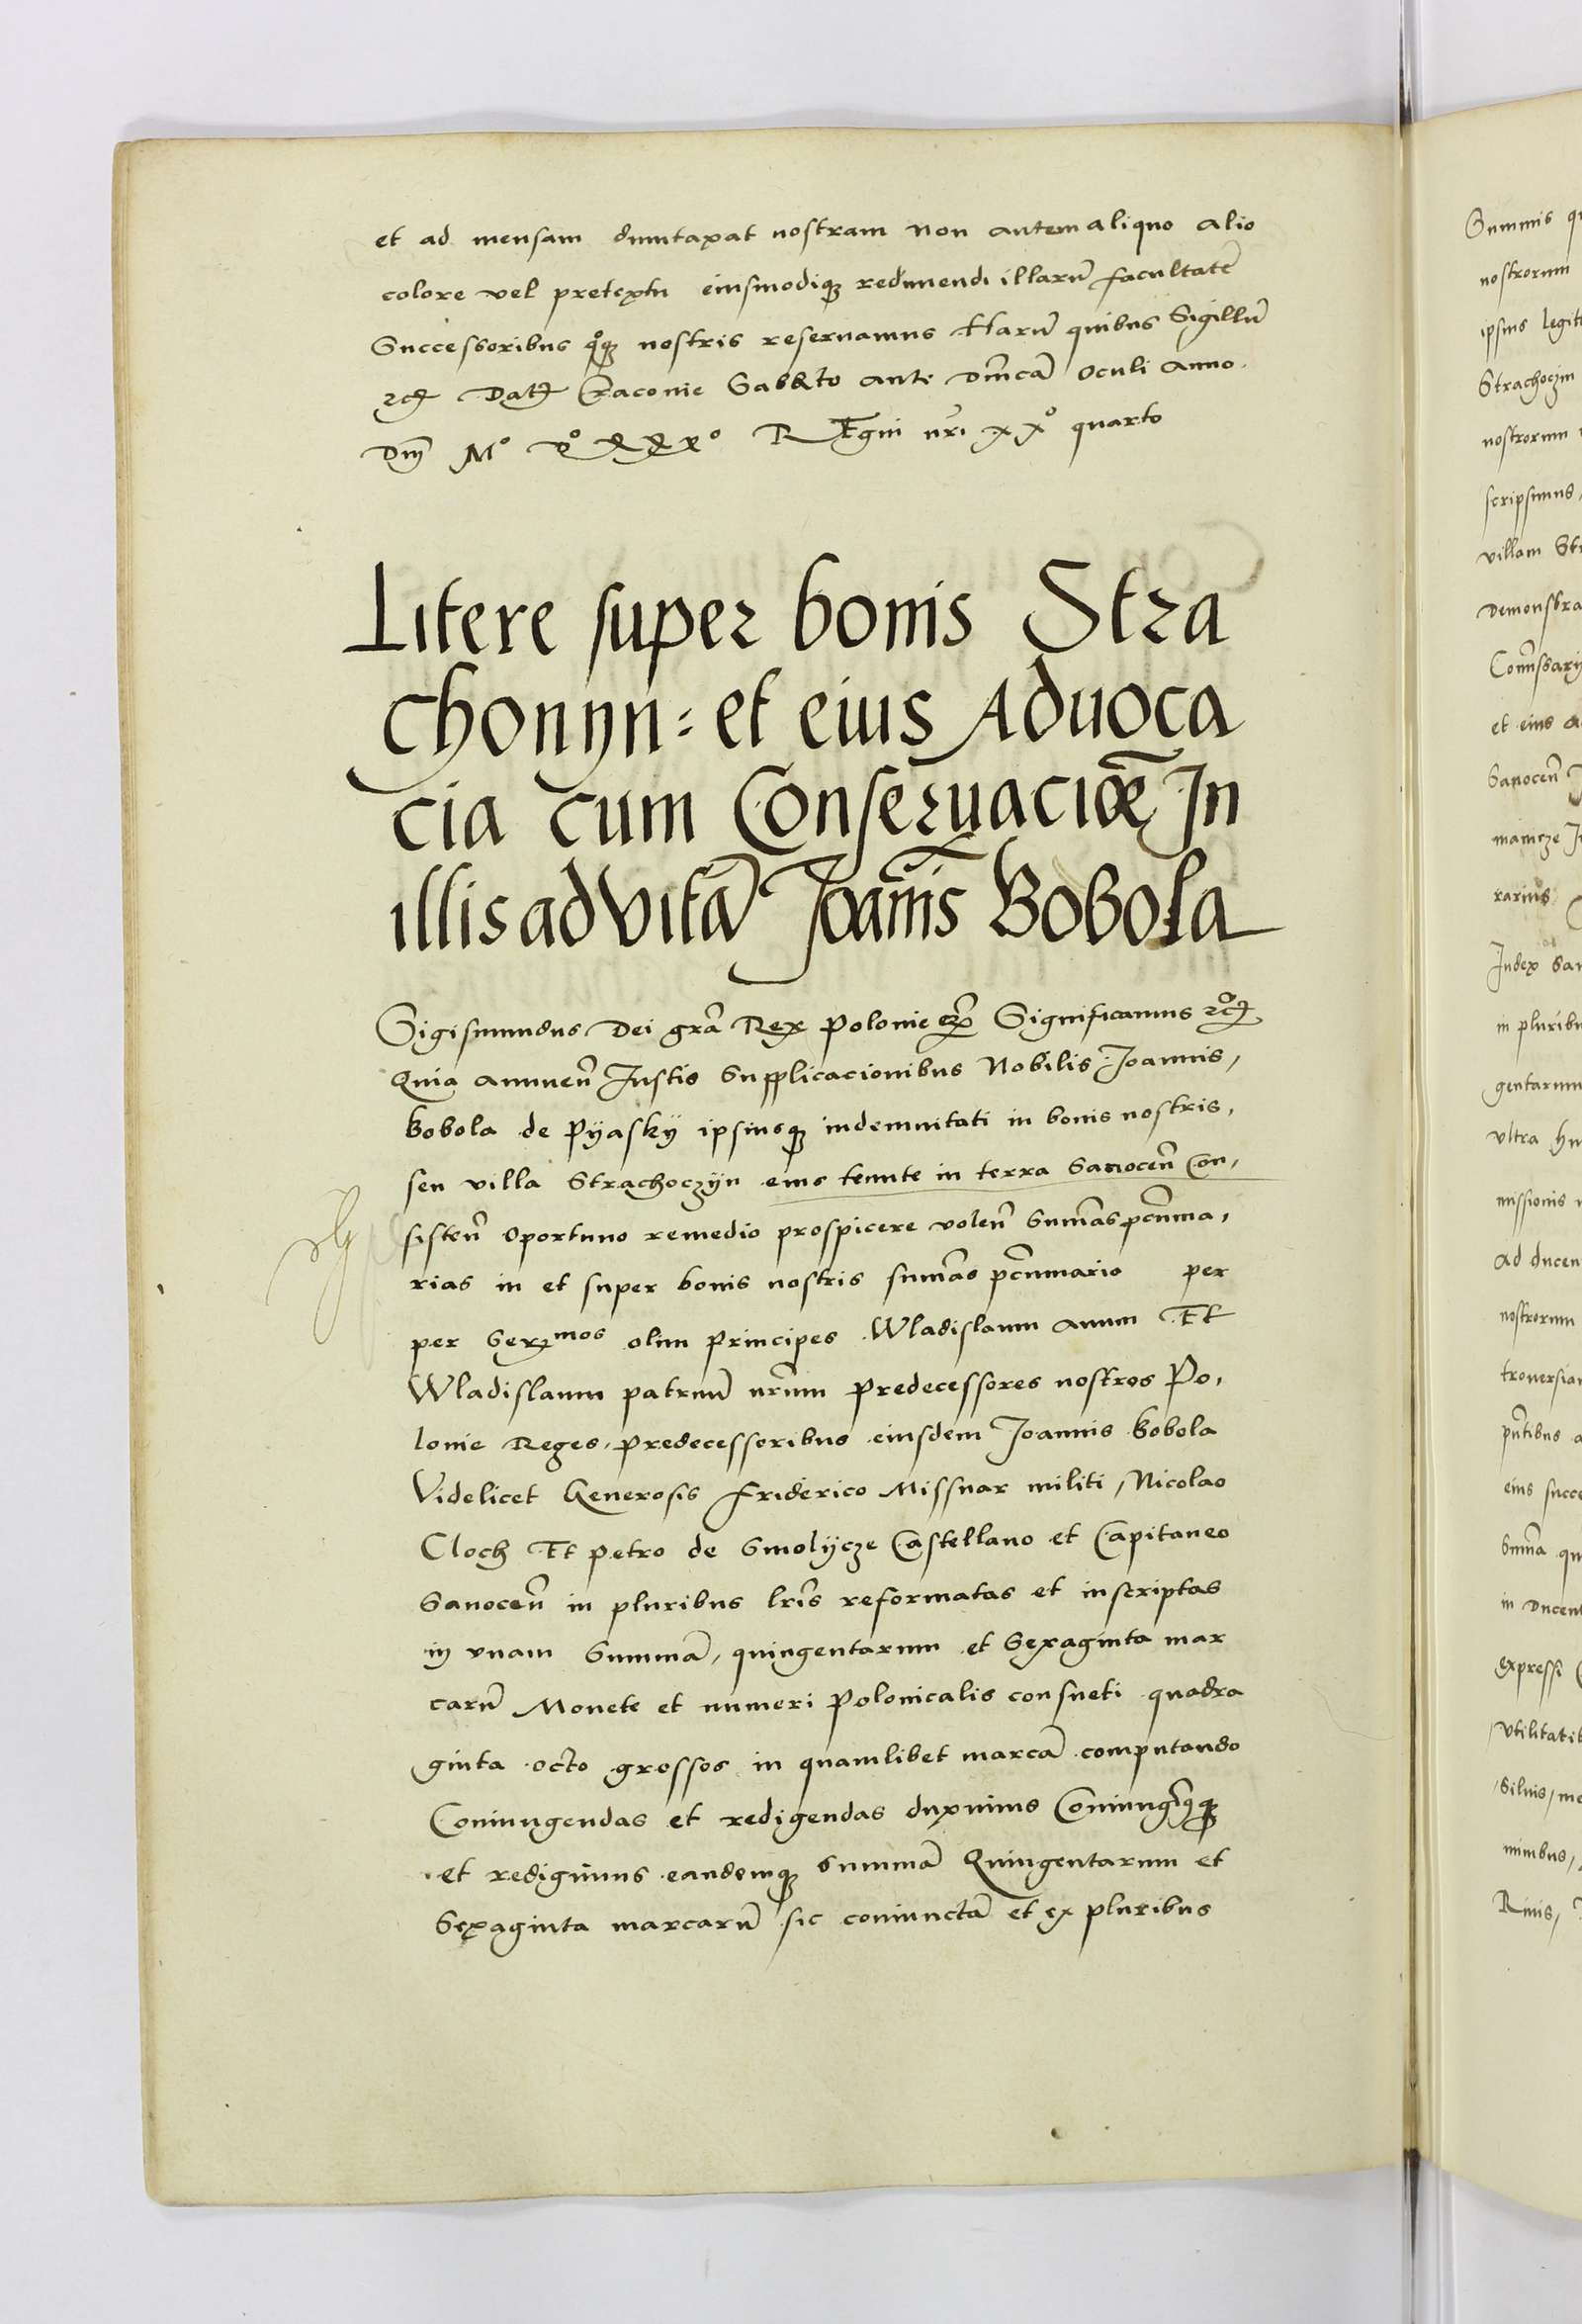 et ad mensam dumtaxat nostram non autem aliquo alio
colore vel pretextu eiusmodiq̄ꝫ redimendi illarū facultatē
Successoribus qͦqꝫ nostris reseruamus Harū quibus Sigillū
Datꝭ Cracouie Sabbto ante Dm̄cā Oculi anno
Dnj Mͦ vͦ xxxͦ REgni nr̄i xxͦ quarto
Litere super bonis Stra
chonyn: et eius Aduoca
cia cum Conseruacioē In
illis ad vitā Joan̄is Bobola
Sigismundus Dei gra Rex Polonie Significamus
Quia annuen̄ Justis Supplicacionibus Nobilis Joannis,
Bobola de Pyasky ipsiusqꝫ indemnitati in bonis nostris,
seu villa Strachoczyn eius tenute in terra Sanocen̄ Con,
sisten̄ Oportuno remedio prospicere volen̄ Summas pecūnia,
rias in et super bonis nostris summas pecūniario per
per Serᵐᵒˢ olim Principes Wladislaum auum Et
Wladislaum patruū nrum Predecessores nostros Po,
lonie Reges, Predecessoribus eiusdem Joannis Bobola
Videlicet Generosis Friderico Missnar militi, Nicolao
Cloch Et Petro de Smolycze Castellano et Capitaneo
Sanocen̄ in pluribus lr̄is reformatas et inscriptas
in vnam Summā, quingentarum et Sexaginta mar
carū Monete et numeri Polonicalis consueti quadra
ginta octo grossos in quamlibet marcā computando
Coniungendas et redigendas duximus
et redigimus eandemqꝫ Summā Quingentarum et
Sexaginta marcarū sic coniunctā et ex pluribus
Summis
nostrorum
ipsius
Strachoczin
nostrorum
scripsimus,
villam
et eius
Index
in
vltra
missionis
nostrorum
eius
in
Expressi